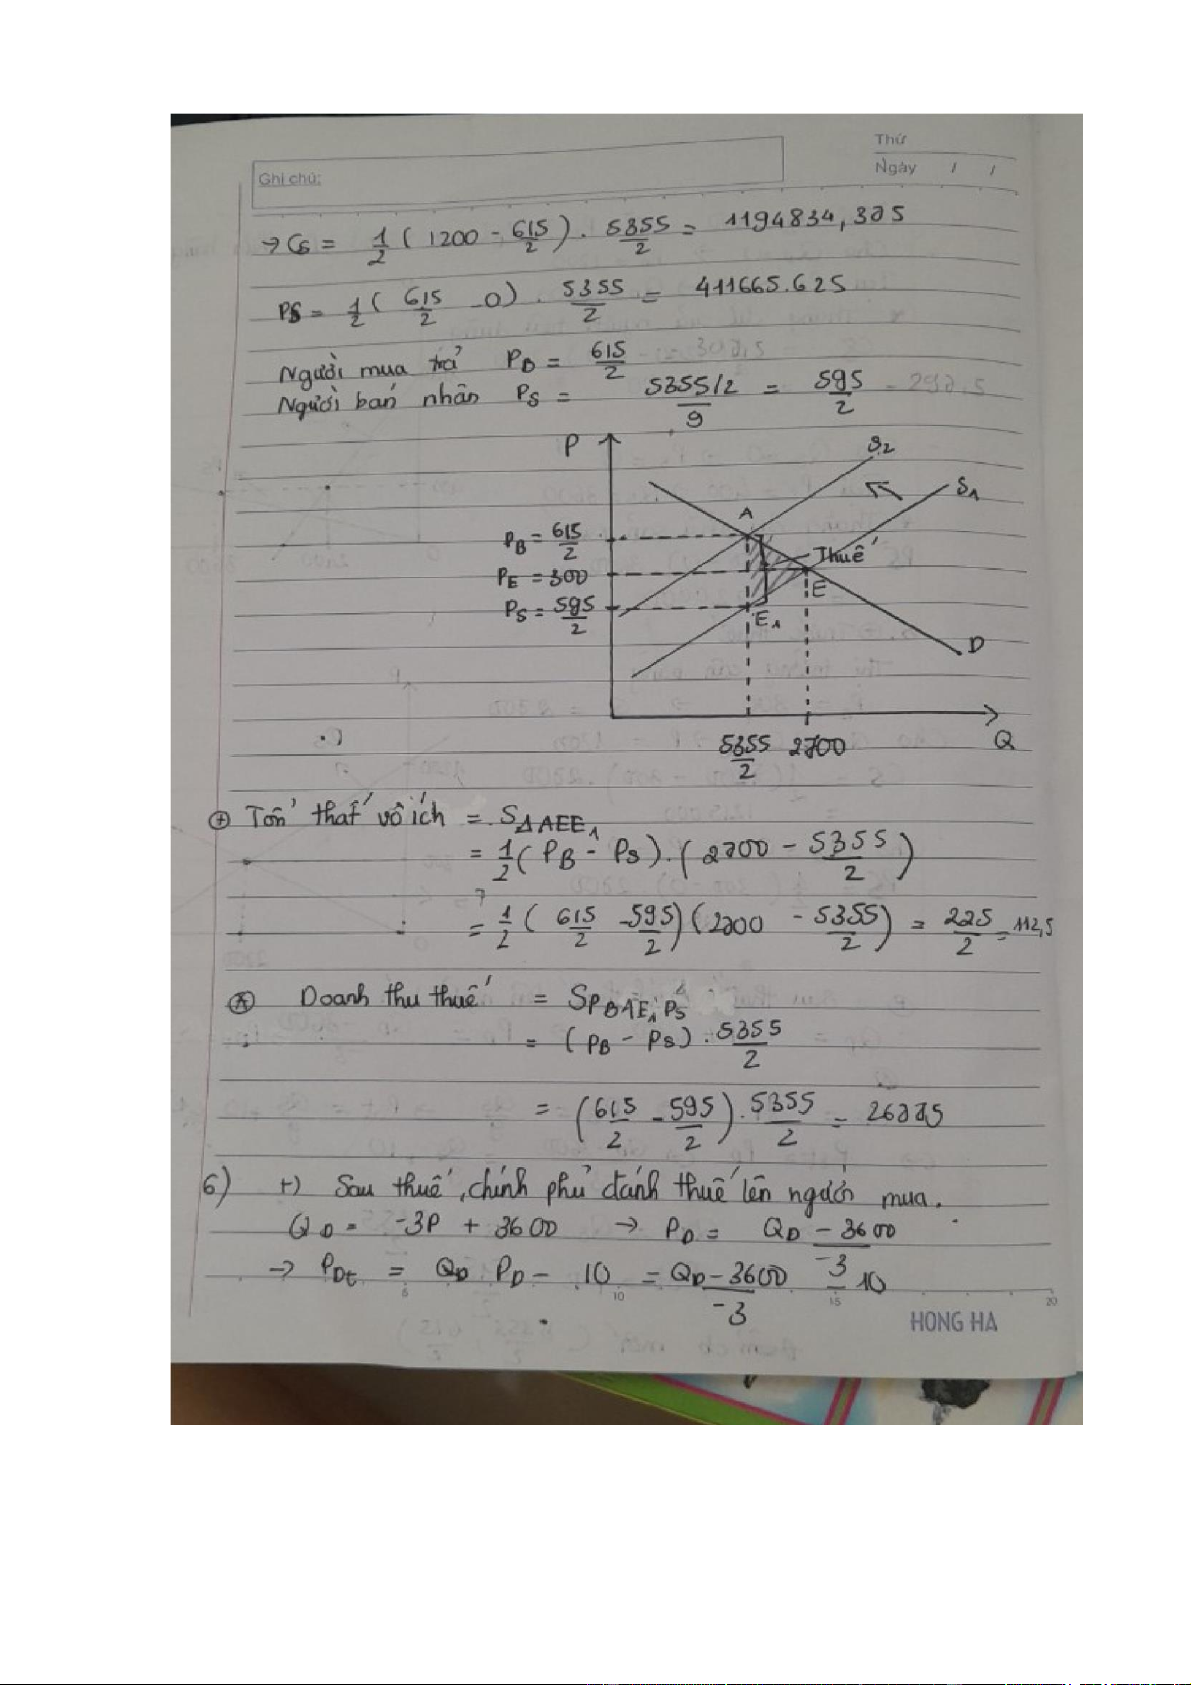 Thứ
Ngày / /
Ghi chú:
→ CS = 1/2 ( 1200 - 615/2 ) . 5355/2 = 1194834,375
PS = 1/2 ( 615/2 - 0 ) . 5355/2 = 411665.625
Người mua trả P_B = 615/2
Người bán nhân P_S = 5355/2 / 9 = 595/2 = 297.5
P
S2
S1
A
P_B = 615/2
Thuế
P_E = 300
E
P_S = 595/2
E1
D
5355/2 2700 Q
⊕ Tổn thất vô ích = S_ΔAEE1
= 1/2 ( P_B - P_S ) . ( 2700 - 5355/2 )
= 1/2 ( 615/2 - 595/2 ) ( 2700 - 5355/2 ) = 225/2 = 112,5
⊛ Doanh thu thuế = S_P_BAE1P_S
= ( P_B - P_S ) . 5355/2
= ( 615/2 - 595/2 ) . 5355/2 = 26775
6) +) Sau thuế, chính phủ đánh thuế lên người mua.
Q_D = -3P + 3600 → P_D = Q_D - 3600 / -3
→ P_Dt = Q_D P_D - 10 = Q_D - 3600 / -3 - 10
5 10 15 20
HONG HA